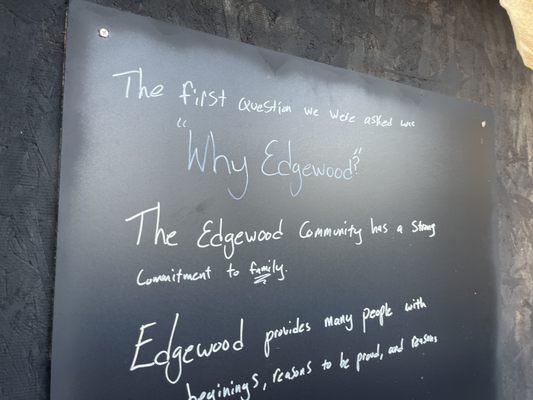 The first question we were asked was
"Why Edgewood?"
The Edgewood Community has a Strong
Commitment to family.
Edgewood provides many people with
beginings, reasons to be proud, and reasons